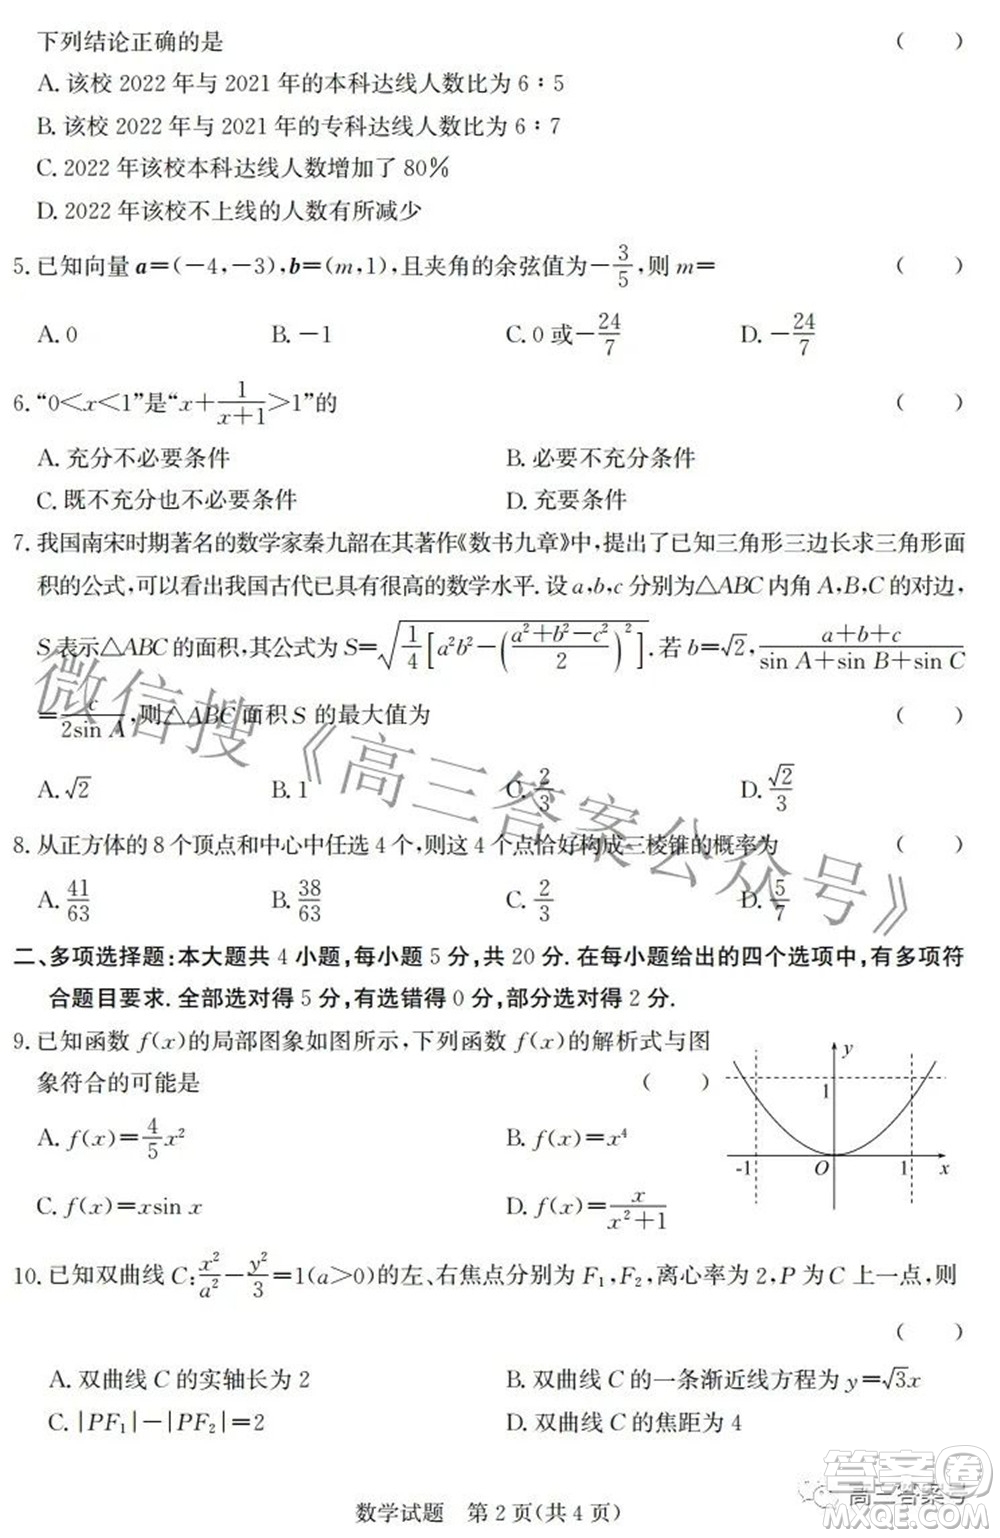 下列结论正确的是 （　　）
A. 该校 2022 年与 2021 年的本科达线人数比为 6∶5
B. 该校 2022 年与 2021 年的专科达线人数比为 6∶7
C. 2022 年该校本科达线人数增加了 80%
D. 2022 年该校不上线的人数有所减少
5. 已知向量 a=(-4,-3),b=(m,1),且夹角的余弦值为-3/5,则 m= （　　）
A. 0　B. -1　C. 0 或-24/7　D. -24/7
6. “0<x<1”是“x+1/(x+1)>1”的 （　　）
A. 充分不必要条件　B. 必要不充分条件
C. 既不充分也不必要条件　D. 充要条件
7. 我国南宋时期著名的数学家秦九韶在其著作《数书九章》中,提出了已知三角形三边长求三角形面
积的公式,可以看出我国古代已具有很高的数学水平. 设 a,b,c 分别为△ABC 内角 A,B,C 的对边,
S 表示△ABC 的面积,其公式为 S=√(1/4[a²b²-((a²+b²-c²)/2)²]). 若 b=√2,(a+b+c)/(sin A+sin B+sin C)
=c/(2sin A),则△ABC 面积 S 的最大值为 （　　）
A. √2　B. 1　C. 2/3　D. √2/3
8. 从正方体的 8 个顶点和中心中任选 4 个,则这 4 个点恰好构成三棱锥的概率为 （　　）
A. 41/63　B. 38/63　C. 2/3　D. 5/7
二、多项选择题:本大题共 4 小题,每小题 5 分,共 20 分. 在每小题给出的四个选项中,有多项符
合题目要求. 全部选对得 5 分,有选错得 0 分,部分选对得 2 分.
9. 已知函数 f(x)的局部图象如图所示,下列函数 f(x)的解析式与图
象符合的可能是 （　　）
A. f(x)=4/5x²　B. f(x)=x⁴
C. f(x)=xsin x　D. f(x)=x/(x²+1)
y
1
-1　O　1　x
10. 已知双曲线 C:x²/a²-y²/3=1(a>0)的左、右焦点分别为 F₁,F₂,离心率为 2,P 为 C 上一点,则
（　　）
A. 双曲线 C 的实轴长为 2　B. 双曲线 C 的一条渐近线方程为 y=√3x
C. |PF₁|-|PF₂|=2　D. 双曲线 C 的焦距为 4
数学试题　第 2 页(共 4 页)
微信搜《高三答案公众号》
高三答案号
答案圈
MXQE.COM